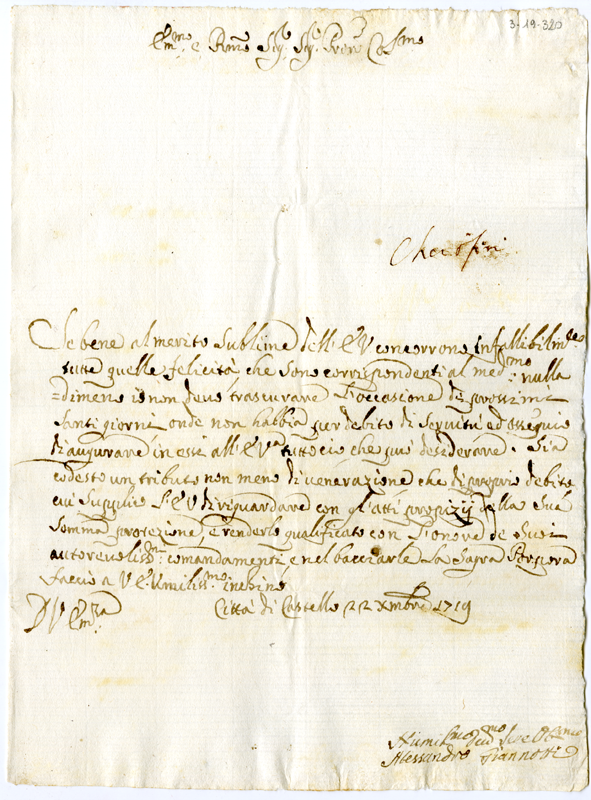 3-19-320
Em.mo e Rmo Sig.re Sig.re Prone Col.mo
Se bene al merito sublime dell'E V concorrono infallibilmte
tutte quelle felicità che sono corrispondenti al med.mo: nulla
=dimeno io non devo trascurare l'occasione di prossimi
Santi giorni onde non habbia per debito di servitù ed ossequio
di augurare in essi all'E Va tutto ciò che può desiderare. Sia
codesto un tributo non meno di venerazione che di proprio debito
cui supplico l'E V di riguardare con gl'atti propizij della sua
somma protezione, e renderlo qualificato con l'onore de suoi
autorevoliss.mi comandamenti e nel bacciarle la Sagra Porpora
faccio a V E. Umiliss.mo inchino
D V Em.za
Città di Castello 22 Xmbre 1719
Humil.mo Serre
Alessandro Giannotti